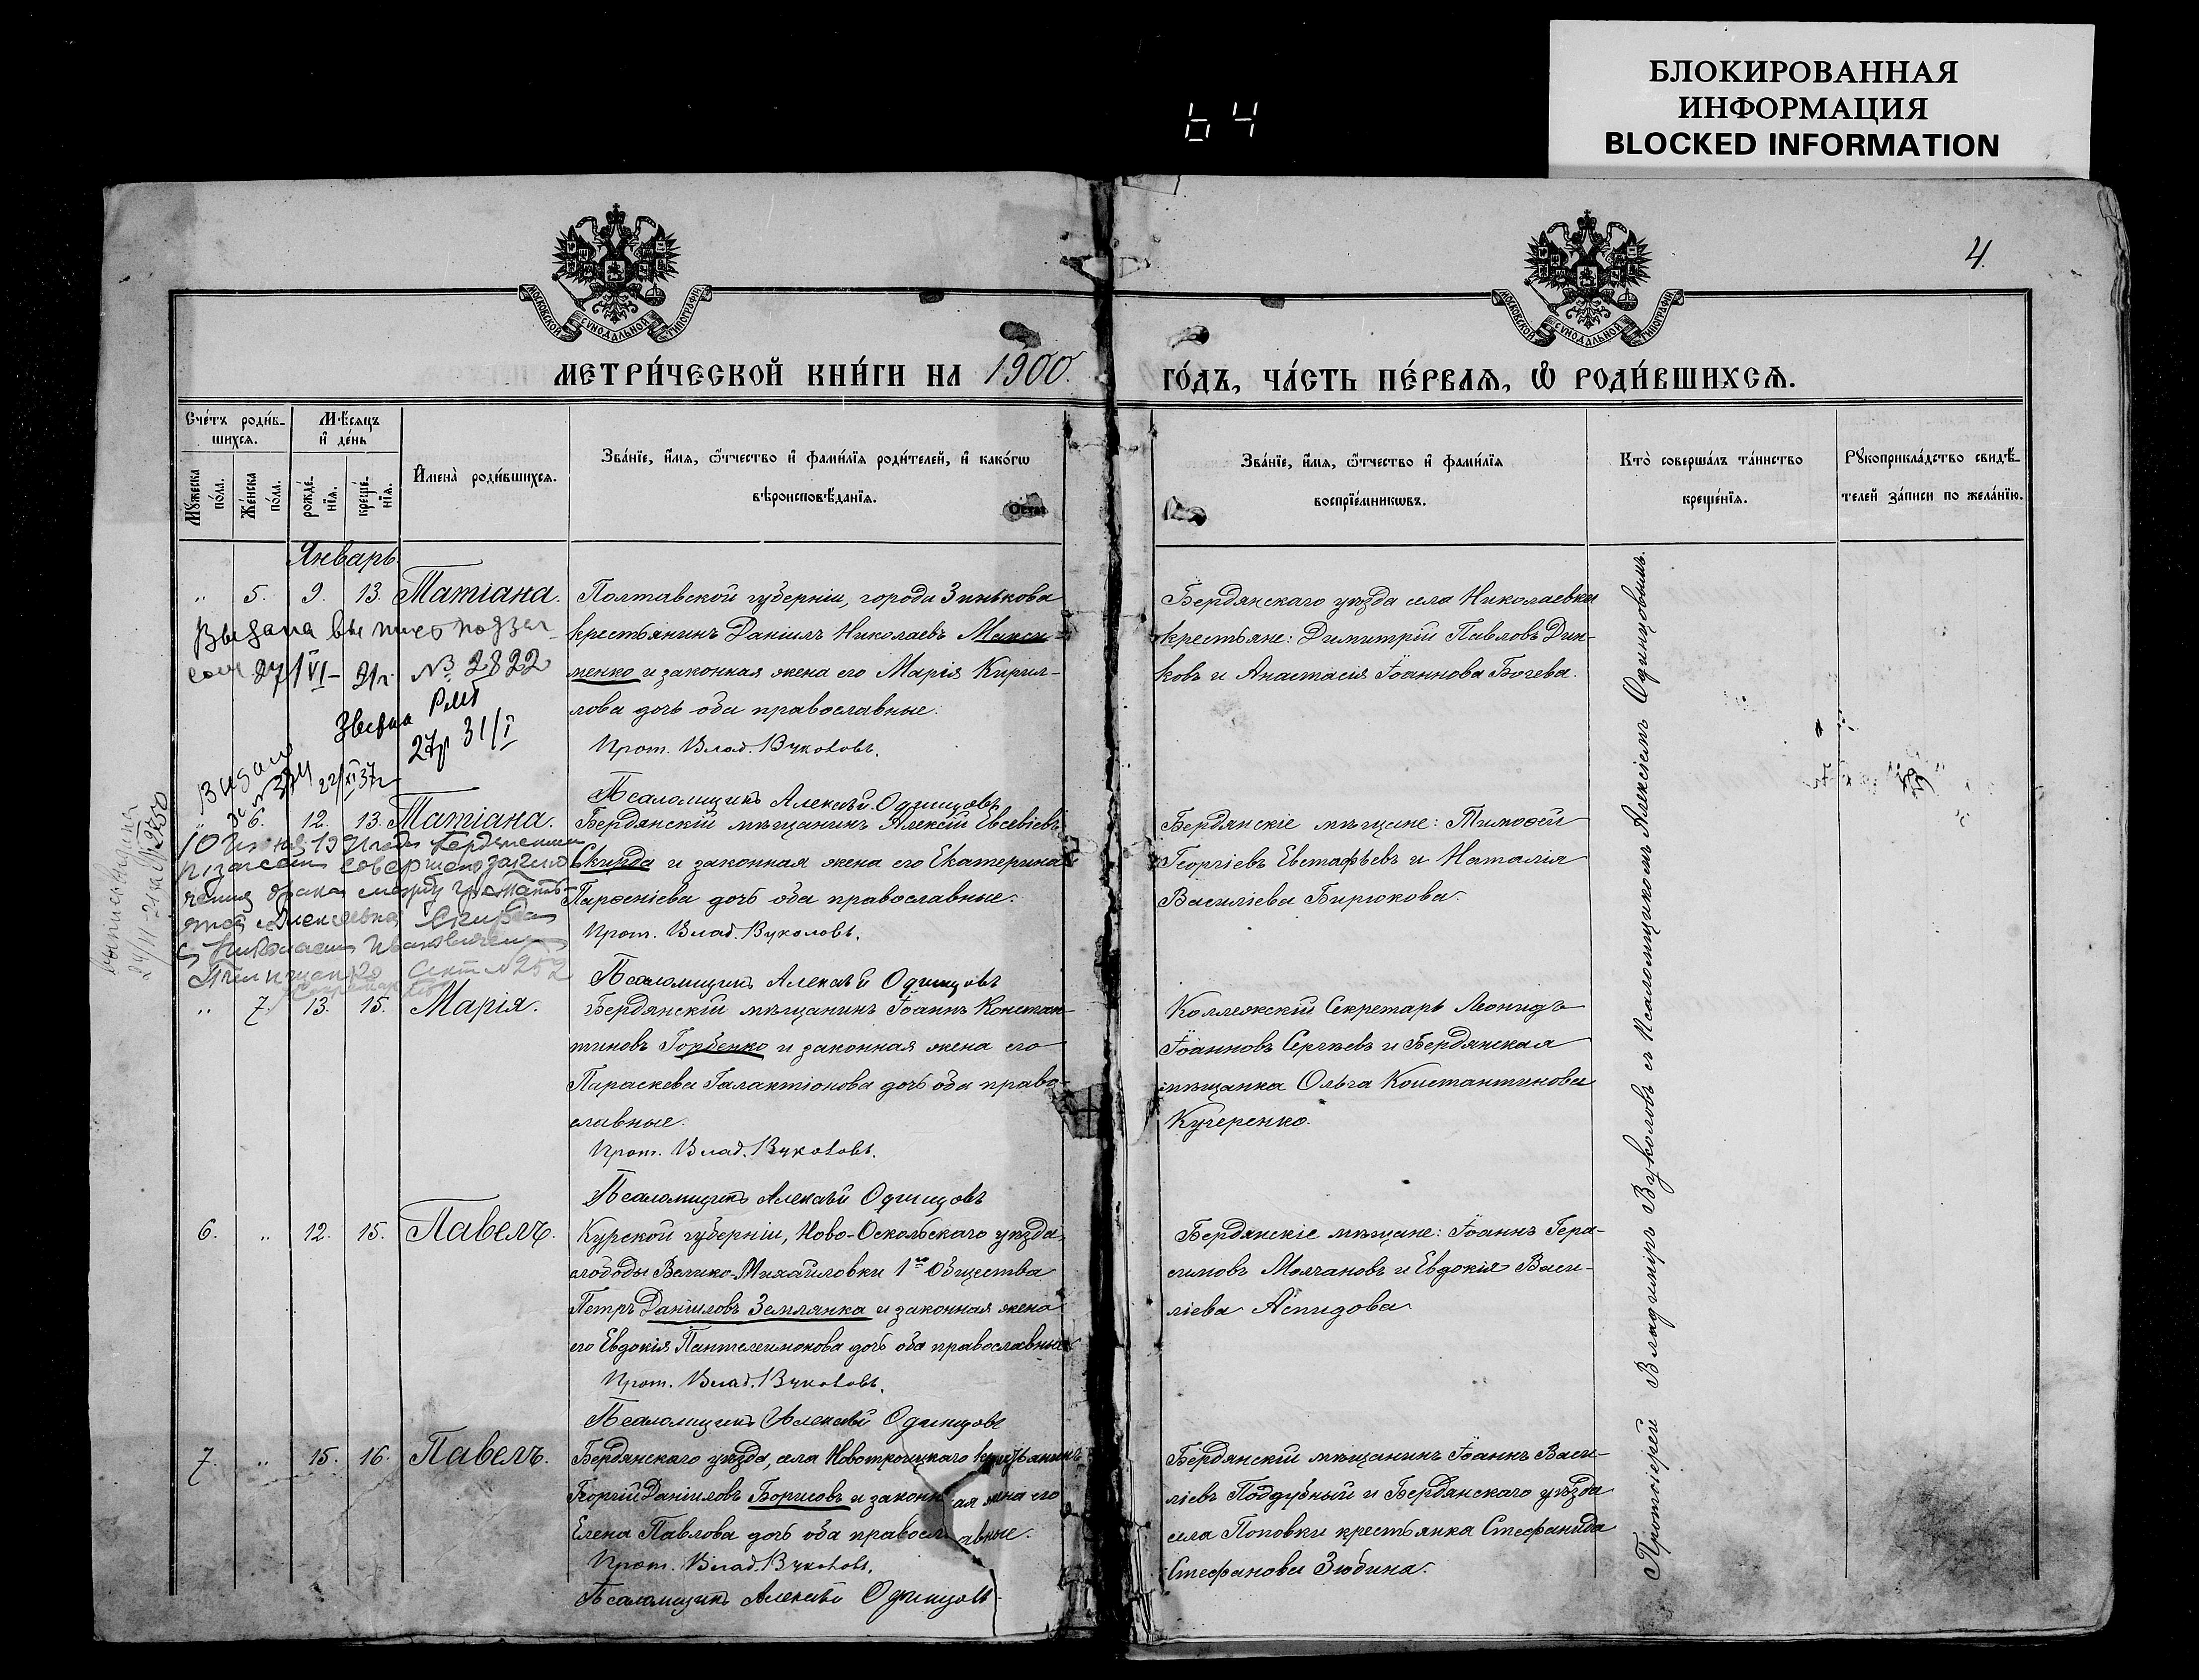 БЛОКИРОВАННАЯ
ИНФОРМАЦИЯ
BLOCKED INFORMATION
64
4.
МОСКОВСКОЙ СѴНОДАЛЬНОЙ ТИПОГРАФІИ
МОСКОВСКОЙ СѴНОДАЛЬНОЙ ТИПОГРАФІИ
МЕТРИ́ЧЕСКОЙ КНИ́ГИ НА 1900.
ГО́ДЪ, ЧА́СТЬ ПЕ́РВАѦ, Ѽ РОДИ́ВШИХСѦ.
Сче́тъ роди́в-
шихсѧ.
Мѣ́сѧцъ
и҆ де́нь
Мꙋ́жеска
по́ла.
Же́нска
по́ла.
рожде́-
нїѧ.
креще́-
нїѧ.
И҆мена̀ роди́вшихсѧ.
Зва́нїе, и҆́мѧ, ѻ҆́тчество и҆ фами́лїѧ роди́телей, и҆ како́гѡ
вѣроисповѣ́данїѧ.
Зва́нїе, и҆́мѧ, ѻ҆́тчество и҆ фами́лїѧ
воспрїе́мникѡвъ.
Кто̀ соверша́лъ та́инство
креще́нїѧ.
Рꙋкоприкла́дство свидѣ́-
телей за́писи по жела́нїю.
Январь.
" 5. 9. 13. Татіана.
Полтавской губерніи, города Зинькова
крестьянинъ Даніилъ Николаевъ Макси-
менко и законная жена его Марія Кирил-
лова дочь оба православные.
Прот. Влад. Вуколовъ.
Псаломщикъ Алексѣй Одинцовъ
Бердянскаго уѣзда села Николаевки
крестьяне: Димитрій Павловъ Дин-
ковъ и Анастасія Іоаннова Бочева.
Выдана
27/VI - 21 г. № 2822
27 г 31/I
22/XI 37 г
6. 12. 13. Татіана.
Бердянскій мѣщанинъ Алексій Евсевіевъ
Скирда и законная жена его Екатерина
Парѳеніева дочь оба православные.
Прот. Влад. Вуколовъ.
Псаломщикъ Алексѣй Одинцовъ
Бердянскіе мѣщане: Тимоѳей
Георгіевъ Евстафьевъ и Наталія
Василіева Бирюкова.
брака между
Скирда
с Николаем Ивановичем
№ 252
" 7. 13. 15. Марія.
Бердянскій мѣщанинъ Іоаннъ Констан-
тиновъ Горбенко и законная жена его
Параскева Галактіонова дочь оба право-
славные.
Прот. Влад. Вуколовъ.
Псаломщикъ Алексѣй Одинцовъ
Коллежскій Секретарь Леонидъ
Іоанновъ Сергѣевъ и Бердянская
мѣщанка Ольга Константинова
Кучеренко.
6. " 12. 15. Павелъ.
Курской губерніи, Ново-Оскольскаго уѣзда,
слободы Велико-Михайловки 1го Общества
Петръ Даніиловъ Землянка и законная жена
его Евдокія Пантелеимонова дочь оба православные
Прот. Влад. Вуколовъ.
Псаломщикъ Алексѣй Одинцовъ
Бердянскіе мѣщане: Іоаннъ Гера-
симовъ Молчановъ и Евдокія Васи-
ліева Аспидова
7. " 15. 16. Павелъ.
Бердянскаго уѣзда, села Новотроицкаго крестьянинъ
Георгій Даніиловъ Борисовъ и законная жена его
Елена Павлова дочь оба православные.
Прот. Влад. Вуколовъ.
Псаломщикъ Алексѣй Одинцовъ
Бердянскій мѣщанинъ Іоаннъ Васи-
ліевъ Поддубный и Бердянскаго уѣзда
села Поповки крестьянка Стефанида
Стефанова Зюбина.
Протоіерей Владиміръ Вуколовъ съ Псаломщикомъ Алексіемъ Одинцовымъ.